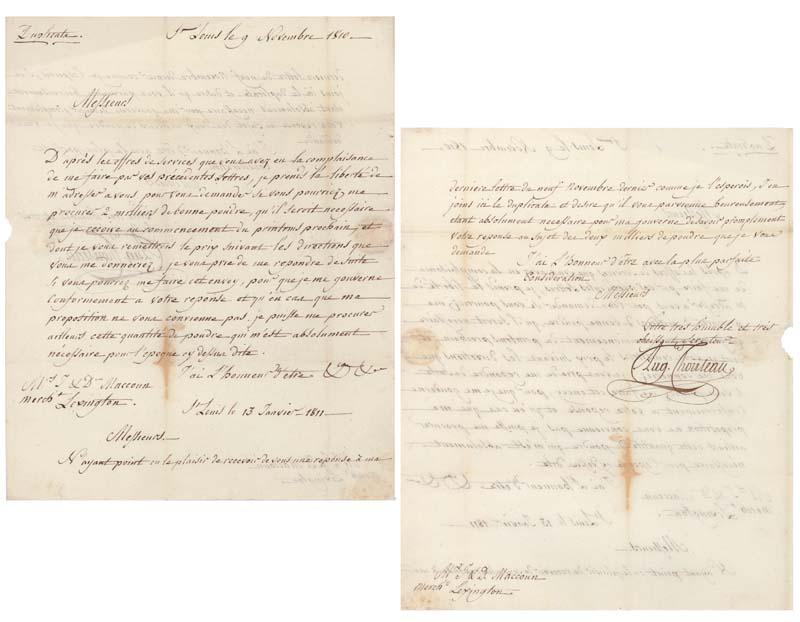 Duplicata.
St Louis le 9 Novembre 1810
Messieurs
D'après les offres de Services que vous avez eu la complaisance
de me faire par vos précédentes lettres, je prends la liberté de
m'adresser a vous pour vous demander Si vous pourriez me
procurer 2 milliers de bonne poudre, qu'il Seroit necessaire
que je reçoive au commencement du printems prochain, et
dont je vous remettrois le prix Suivant les directions que
vous me donneriez, je vous prie de me repondre de Suite
Si vous pourrez me faire cet envoy, pour que je me gouverne
Conformement a votre reponse et qu'en cas que ma
proposition ne vous convienne pas, je puisse me procurer
ailleurs cette quantité de poudre qui m'est absolument
necessaire pour l'epoque cy dessus dite.
J'ai l'honneur d'etre &c &c
Mrs J & Ds Maccoun
merchts Lexington.
St Louis le 13 Janvier 1811
Messieurs
N'ayant point eu le plaisir de recevoir de vous une reponse à ma
derniere lettre du neuf Novembre dernier comme je l'esperois, J'en
joins ici le duplicata et desire qu'il vous parvienne heureusement
etant absolument necessaire pour ma gouverne de savoir promptement
votre reponse au Sujet des deux milliers de poudre que je vous
demande
J'ai L'honneur d'etre avec la plus parfaite
Consideration
Messieurs
Votre tres humble et très
obeissant Serviteur
Aug. Chouteau
Mrs J & D Maccoun
merchts Lexington.